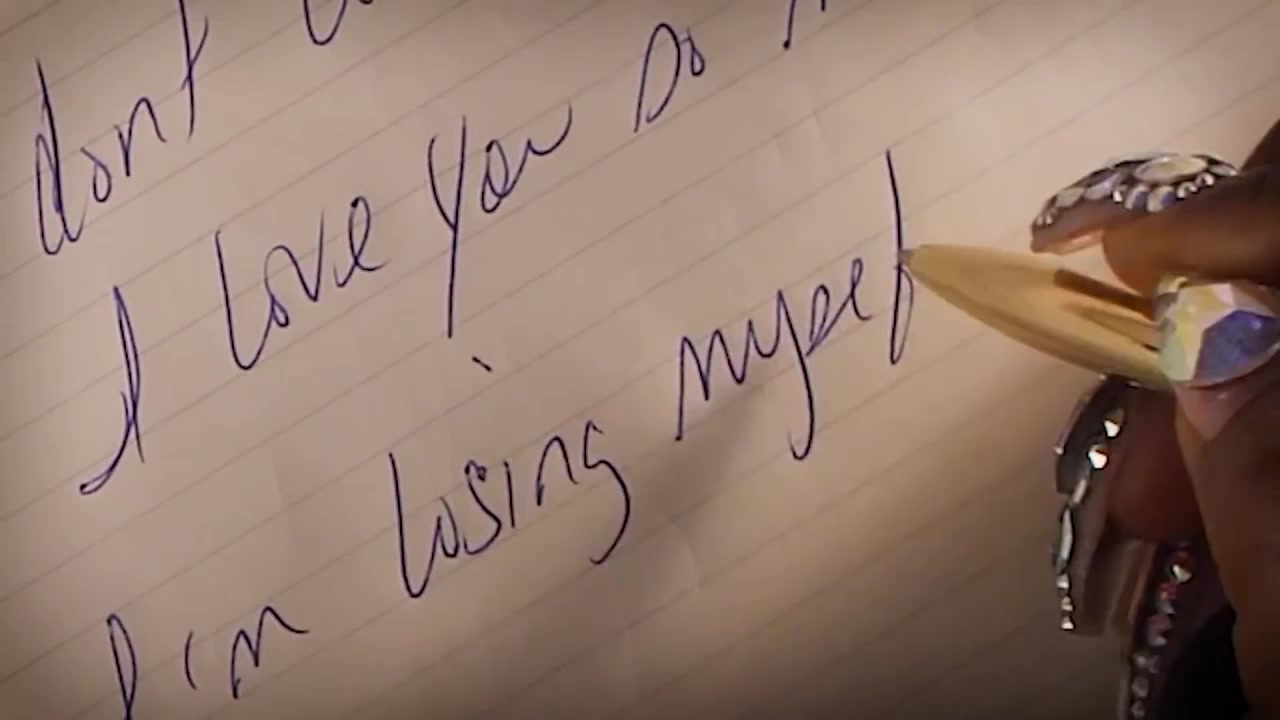 dont
I love you so
I'm losing myself